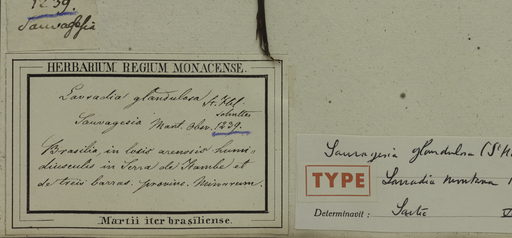 1239.
Sauvagesia
HERBARIUM REGIUM MONACENSE.
Lavradia glandulosa St. Hil.
Sauvagesia Mart. Obs. 1239.
Brasilia, in locis arenosis humi-
diusculis in Serra de Itambe et
de tres barras. provinc. Minarum.
Martii iter brasiliense.
Sauvagesia glandulosa (St H
TYPE Lavradia montana
Determinavit : Sastre